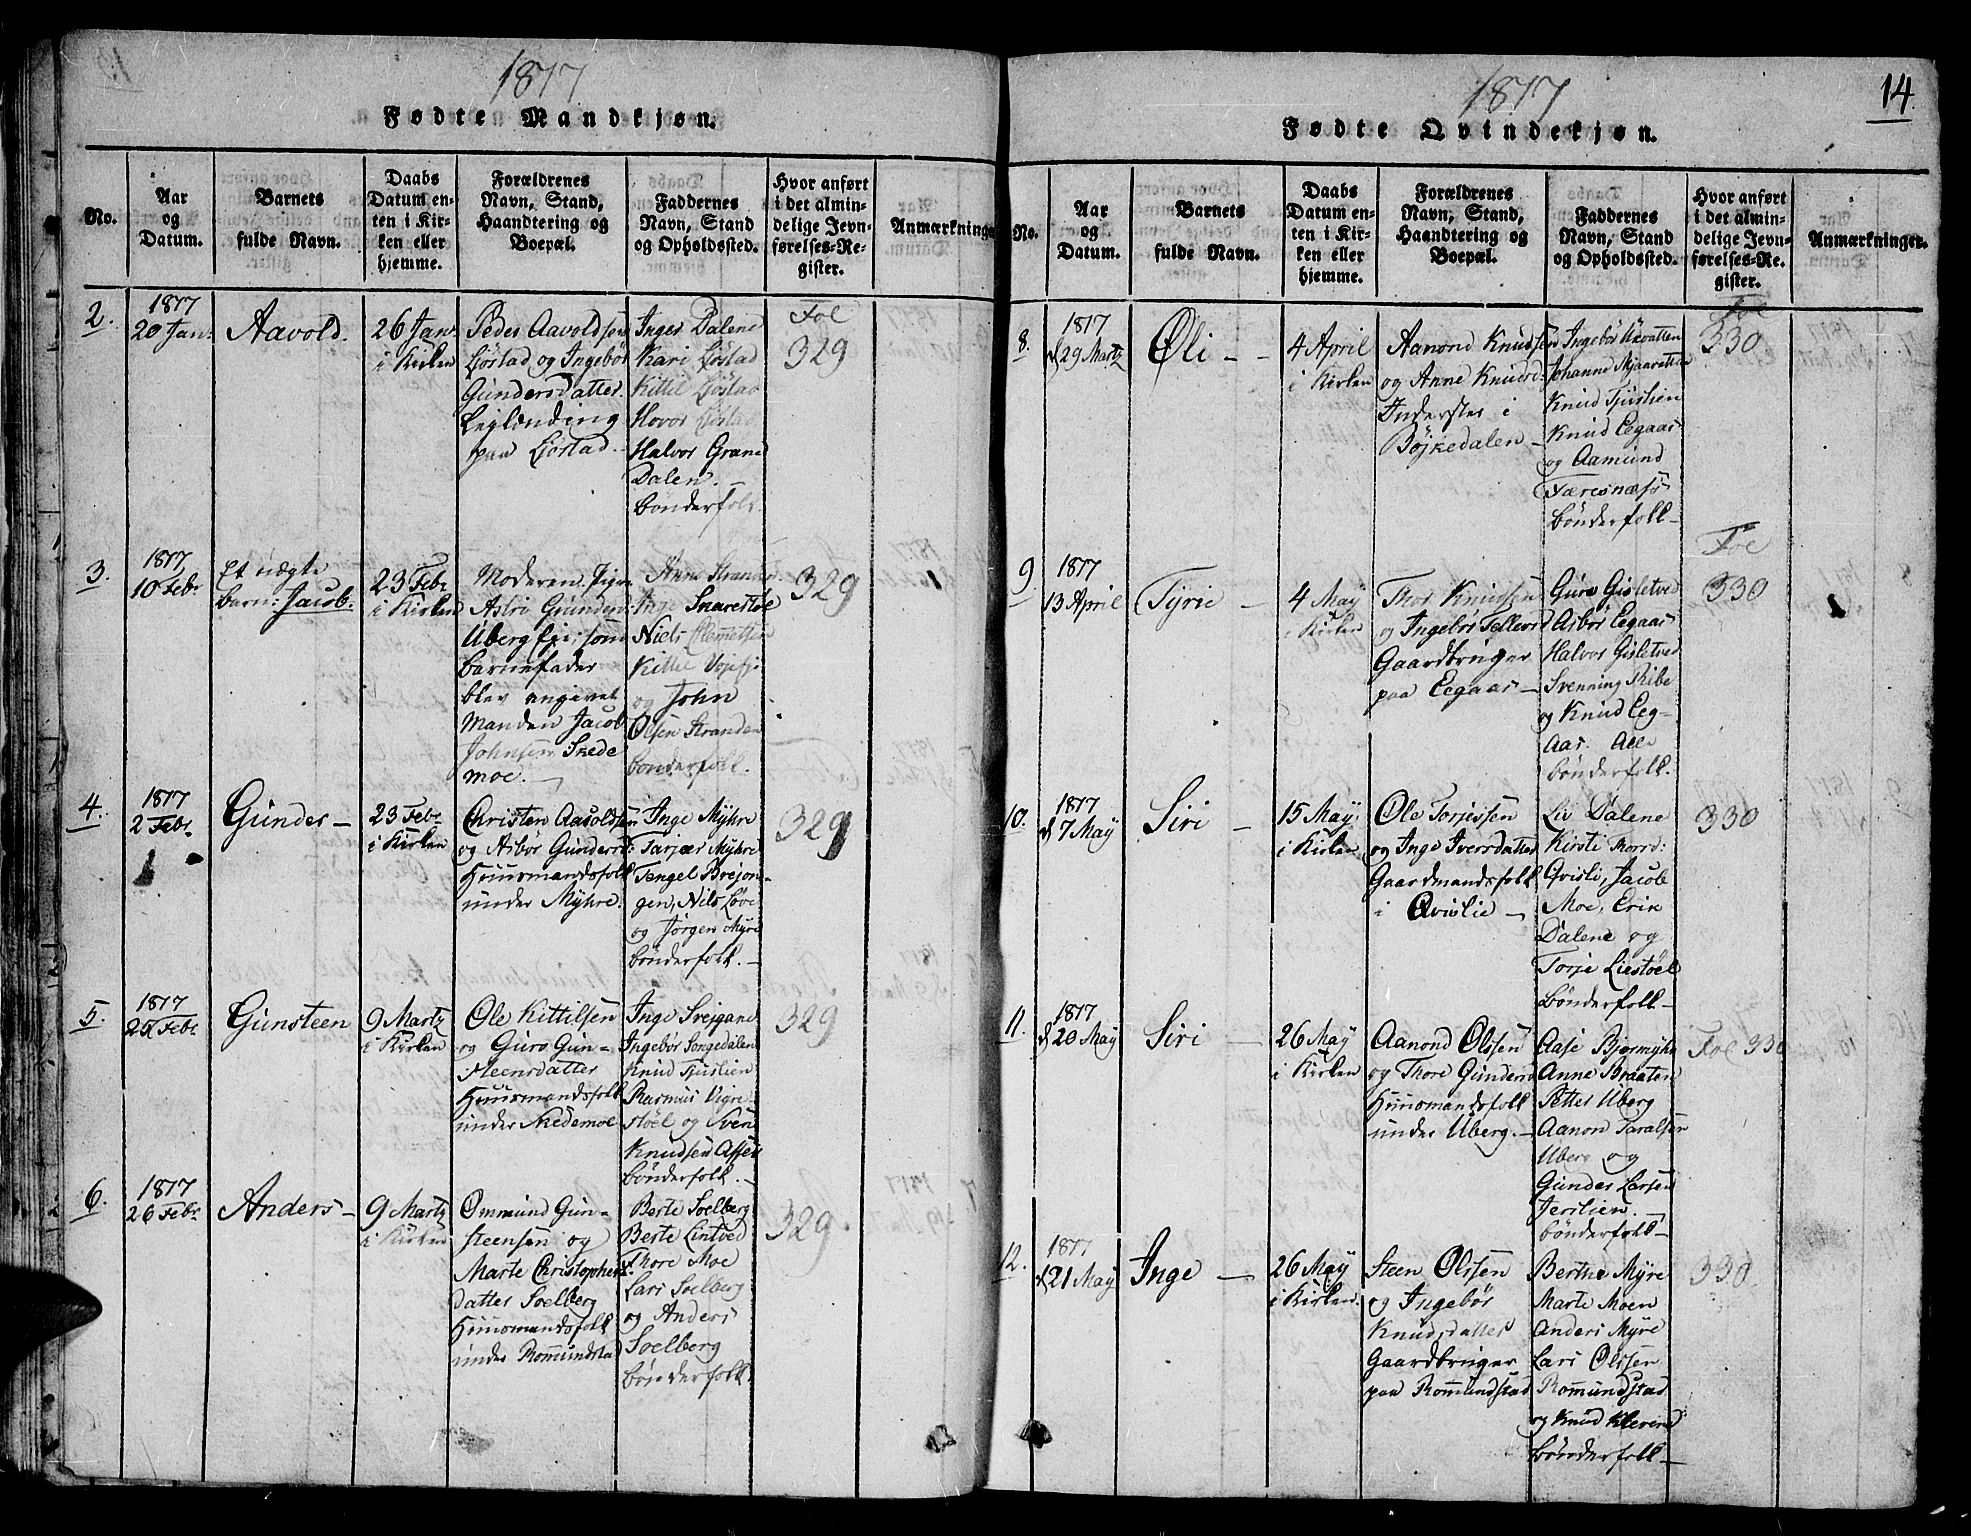 1817
Fødte Mandkjøn.
No.
Aar
og
Datum.
Barnets
fulde Navn.
Daabs
Datum en-
ten i Kir-
ken eller
hjemme.
Forældrenes
Navn, Stand,
Haandtering og
Boepæl.
Faddernes
Navn, Stand
og Opholdssted.
Hvor anført
i det almin-
delige Jevn-
førelses-Re-
gister.
Anmærkninger
2.
1817
20 Jan.
Aavold.
26 Jan.
i Kirken
Peder Aavoldsen
Ljøstad og Ingebør
Gundersdatter
Leylænding
paa Ljøstad.
Inger Dalene
Kari Ljøstad
Kittil Ljøstad
Hovor Ljøstad
Halvor Grane
Dalen. –
bønderfolk.
Fol
329
3.
1817
10 Febr.
Et uægte
barn: Jacob.
23 Febr.
i Kirken
Moderen, Pigen
Astri Gunders
Uberg
barnefader
blev angivet
Manden Jacob
Johnsen Skede
moe. –
Anne Stranden
Inge Snarestøl
Niels Clemetsen
Kittil
og John
Olsen Stranden
bønderfolk.
329
4.
1817
2 Febr.
Gunder –
23 Febr.
i Kirken
Christen Aavoldsen
og Asbør Gundersd:
Huusmandsfolk
under Myhre.
Inge Myhre
Tarjær Myhre
Tengel Brejon-
gen, Nils Løve
og Jørgen Myre
bønderfolk. –
329
5.
1817
Febr.
Gunsteen
9 Martz
i Kirken
Ole Kittilsen
og Guro Gun-
steensdatter
Huusmandsfolk
under Skedemoe
Inge Svejgane
Ingebør Songedalen
Knud Tjuslien
Rasmus Vigre-
støel og Sven
Knudsen
bønderfolk. –
329
6.
1817
26 Febr.
Anders –
9 Martz
i Kirken
Ommund Gun-
steensen og
Marte Christophers-
datter Soelberg
Huusmandsfolk
under Rommundstad
Berte Soelberg
Berte Lintved
Thore Moe
Lars Soelberg
og Anders
Soelberg
bønderfolk.
329.
1817
14
Fødte Qvindekjøn.
No.
Aar
og
Datum.
Barnets
fulde Navn.
Daabs
Datum en-
ten i Kir-
ken eller
hjemme.
Forældrenes
Navn, Stand,
Haandtering og
Boepæl.
Faddernes
Navn, Stand
og Opholdssted.
Hvor anført
i det almin-
delige Jevn-
førelses-Re-
gister.
Anmærkninger.
8.
1817
d 29 Martz
Øli – –
4 April
i Kirken
Aanond Knudsen
og Anne Knudsd:
Inderster i
Bøjkedalen –
Ingebør
Johanne Mjaavatten
Knud Tjuslien
Knud Eegaas
og Aamund
Færesnæss
bønderfolk –
Fol
330
9
1817
13 April
Tyrie –
4 May
i Kirken
Thor Knudsen
og Ingebør Tellevsd
Gaardbruger
paa Eegaas –
Guro Gisletved
Asbør Eegaas
Halvor Gisletved
Svenning Ribe
og Knud Eeg-
Aas. Alle
bønderfolk.
Fol
330
10.
1817
d 7 May
Siri –
15 May
i Kirken
Ole Torjessen
og Inge Iversdatter
Gaardmandsfolk
i Qvislie –
Liv Dalene
Kirsti Thorsd:
Qvisli, Jacob
Moe, Erik
Dalene og
Torje Liestøel
bønderfolk –
330
11.
1817
d 20 May
Siri –
26 May
i Kirken
Aanond Olssen
og Thore Gundersd
Huusmandsfolk
under Uberg. –
Aase Bjormyhr
Anne Braaten
Petter Uberg
Aanon Taralsen
Uberg og
Gunder Larsen
Jerslien. –
bønderfolk –
Fol 330
12.
1817
d 21 May
Inge –
26 May
i Kirken.
Steen Olssen
og Ingebør
Knudsdatter
Gaardbruger
paa Rommundstad
Berthe Myre
Marte Moen
Anders Myre
Lars Olssen
Rommundstad
og Knud Klevene
bønderfolk –
330